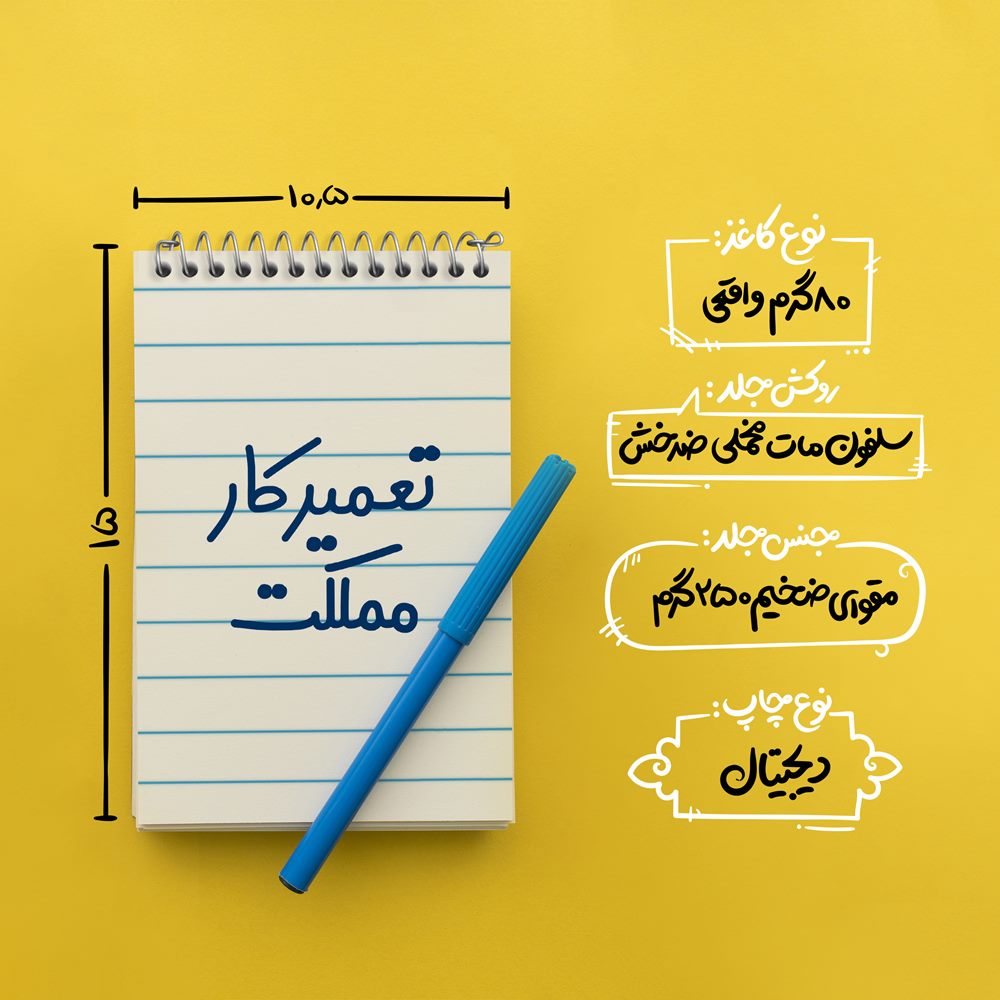 ۱۰٫۵
۱۵
تعمیرکار
مملکت
نوع کاغذ:
۸۰گرم واقعی
روکش جلد:
سلفون مات مخملی ضدخش
جنس جلد:
مقوای ضخیم ۲۵۰گرم
نوع چاپ:
دیجیتال